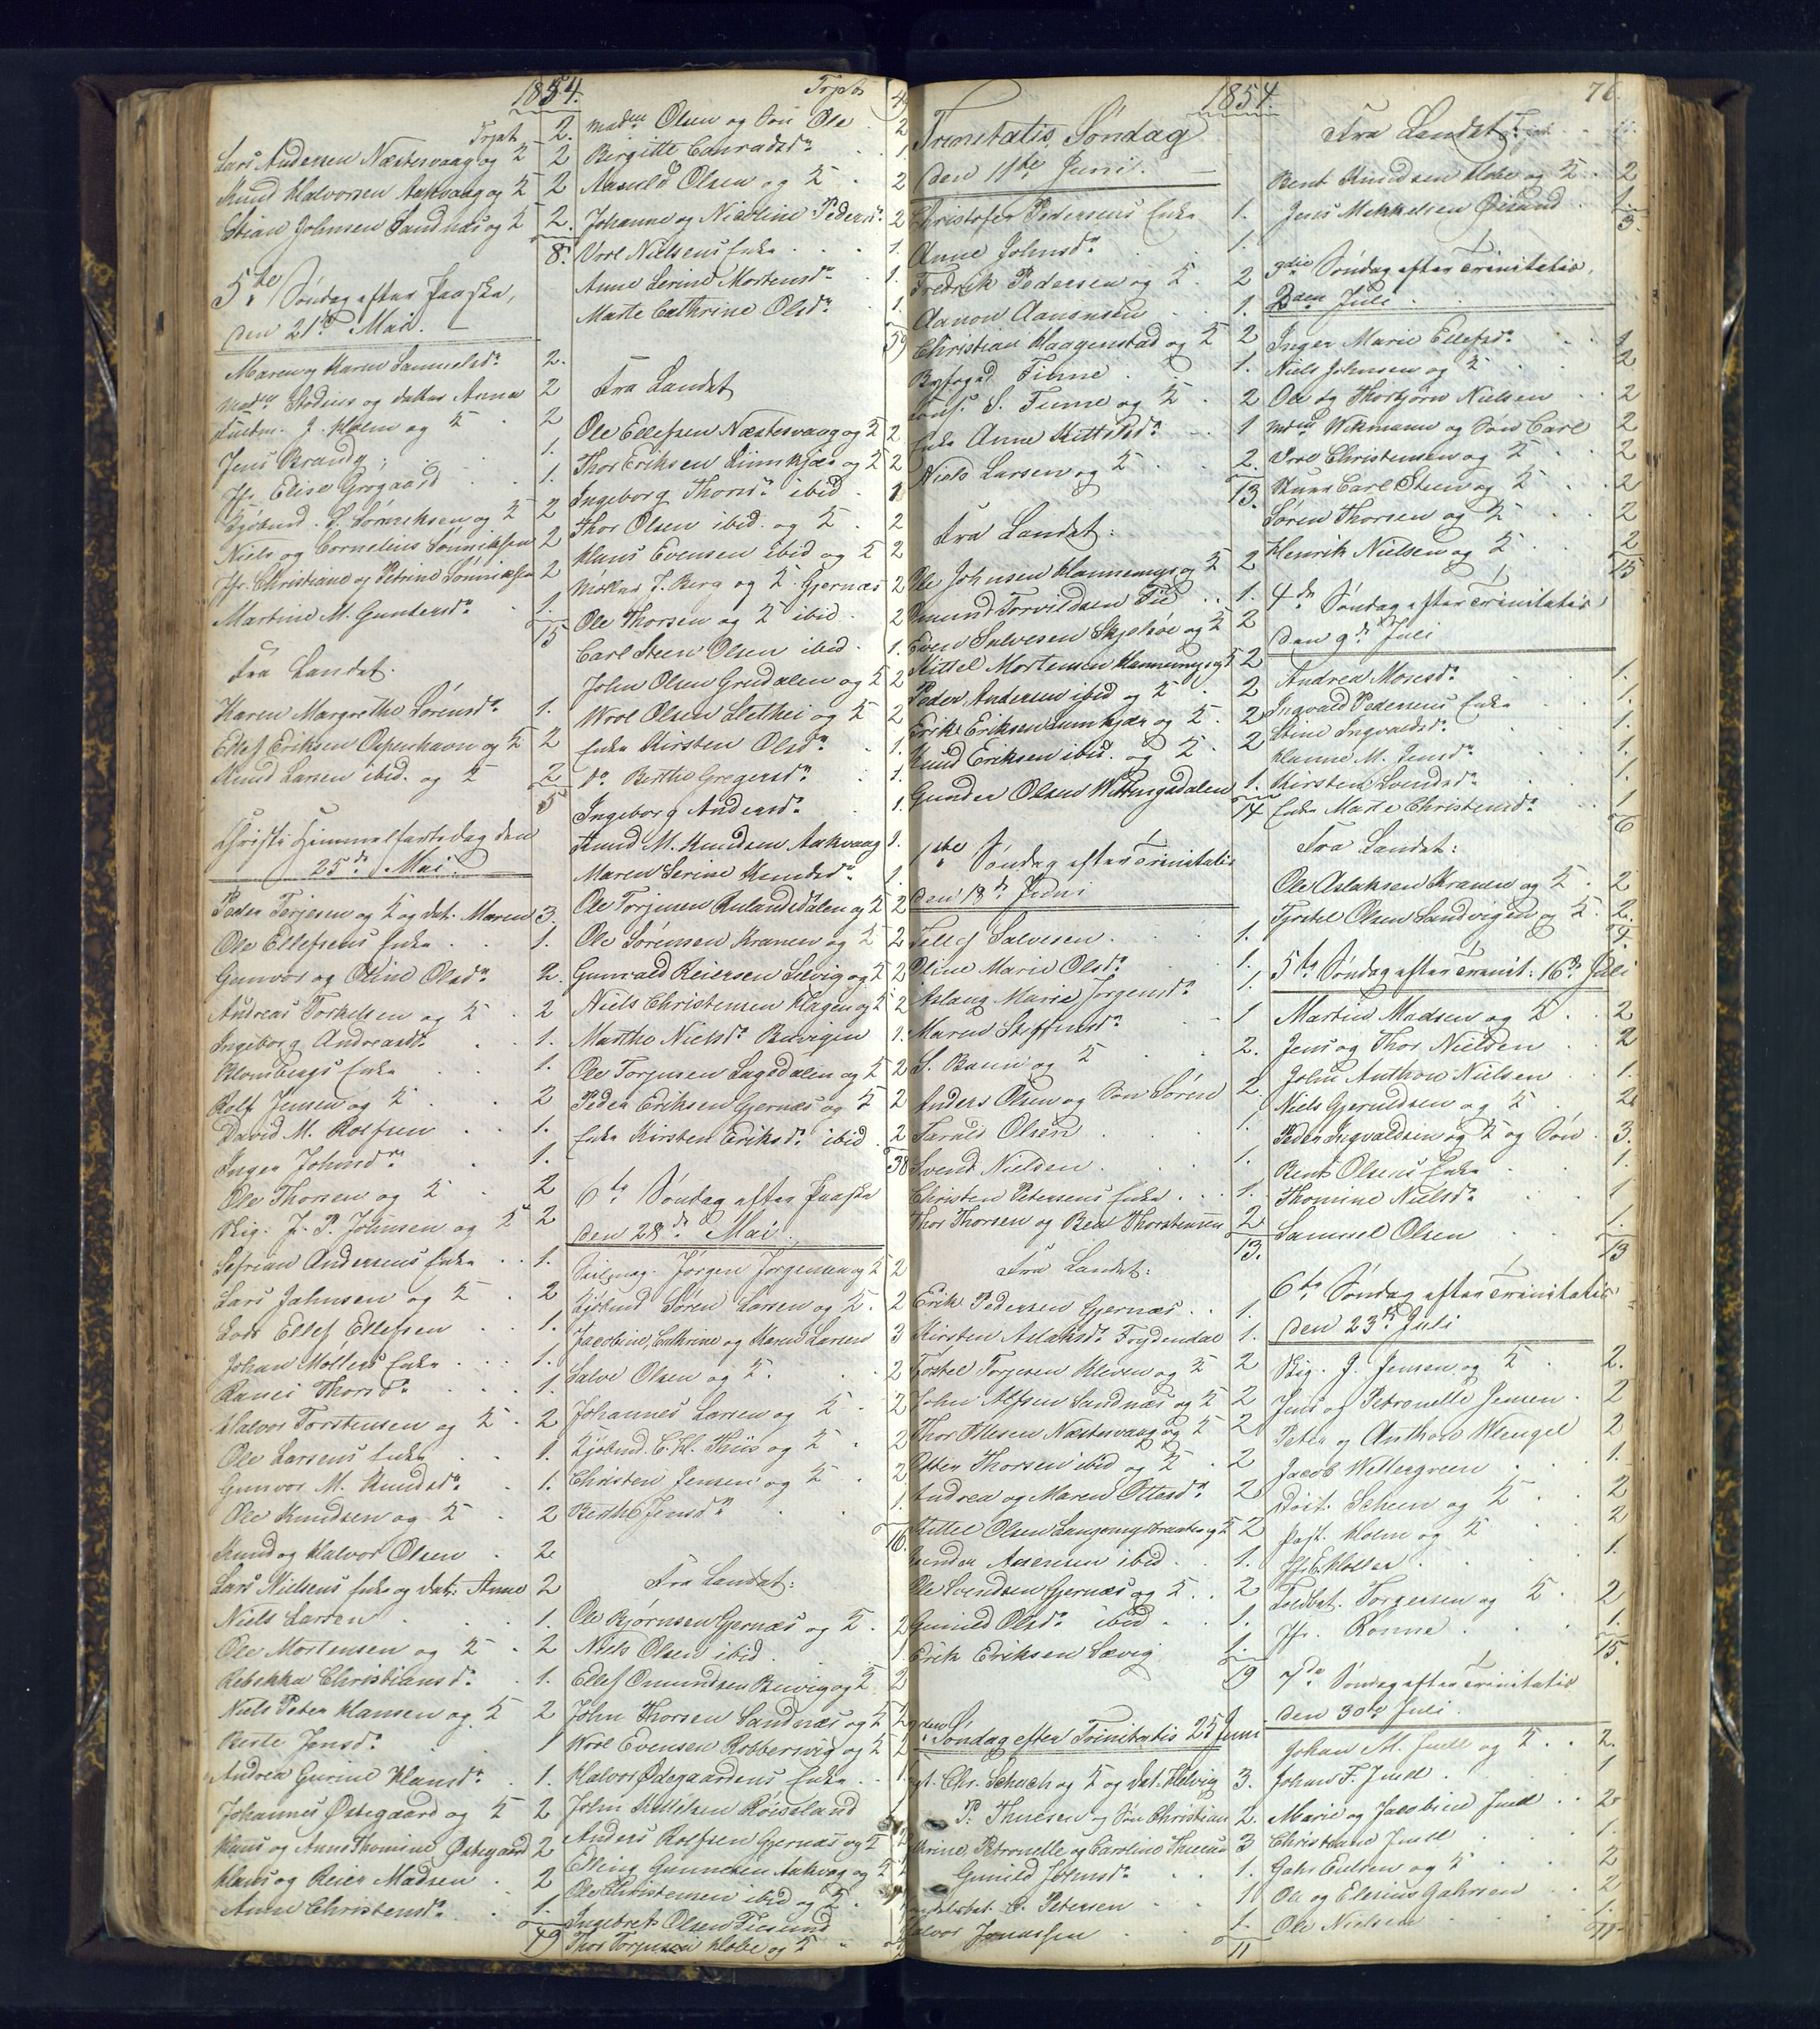 1854.
Trpt. 2.
Lars Andersen Næstesvaag og K 2
Knud Halvorsen Aakvaag og K 2
Stian Johnsen Sandnæs og K 2.
8.
5te Søndag efter Paaske,
den 21de Mai.
Maren og Karen Samuelsdr 2.
Madm Stodius og datter Anna 2
J. Holm og K 2
Jens Brandy 1.
Jfr. Elise Grogaard 1.
Kjøbmd. S. Sønniksen og K 2
Niels og Cornelius Sønniksen 2
Jfr. Christiane og Petrine Sønniksen 2
Martine M. Gundersdr 1.
15
Fra Landet.
Karen Margrethe Sørensdr 1.
Ellef Eriksen Ospevhavn og K 2
Knud Larsen ibid. og K 2
5
Christi Himmelfartsdag den
25de Mai.
Peder Terjesen og K og dat. Maren 3.
Ole Ellefsens Enke 1.
Gunvor og Oline Olsdr 2.
Andreas Torkelsen og K 2
Ingeborg Andreasdr 1.
Blombergs Enke 1.
Rolf Jensen og K 2
David M. Rolfsen 1.
Inger Johnsdr 1.
Ole Thorsen og K 2
J. P. Johnsen og K 2
Sefrian Andersens Enke 1.
Lars Jahnsen og K 2
Lods Ellef Ellefsen 1.
Johan Møllers Enke 1.
Ranei Thorsdr 1.
Halvor Torstensen og K 2
Ole Larsens Enke 1.
Gunvor M. Knudsdr 1.
Ole Knudsen og K 2
Knud og Halvor Olsen 2
Lars Nielsens Enke og dat. Anne 2
Niels Larsen 1.
Ole Mortensen og K 2
Rebekka Christiansdr 1.
Niels Peter Hansen og K 2
Berte Jensdr 1
Andrea Gurine Hansdr 1.
Johannes Østegaard og K 2
Hans og Anne Thomine Østegaard 2
Hans og Reier Madsen 2
Anne Christensdr 1.
49
Trpt 49
Madm Olsen og Søn Ole 2
Bergitte Conradsdr 1.
Aanold Olsen og K 2
Johanne og Nicoline Pedersdr 2
Vorl Nielsens Enke 1.
Anne Serine Mortensdr 1.
Marte Cathrine Olsdr 1.
59
Fra Landet
Ole Ellefsen Næstesvaag og K 2
Thor Eriksen Linnkjær og K 2
Ingeborg Thorsdr ibid 1
Thor Olsen ibid. og K 2
Hans Evensen ibid og K 2
Møller J. Berg og K Gjernæs 2
Ole Thorsen og K ibid 2
Carl Steen Olsen ibid 1.
John Olsen Grudalen og K 2
Worl Olsen Slethei og K 2
Enke Kirsten Olsdr 1.
Do Berthe Gregersdr 1.
Ingeborg Andersdr 1.
Knud M. Knudsen Aakvaag 1.
Maren Serine Knudsdr 1.
Ole Torjusen Rulandsdalen og K 2
Ole Sørensen Kranen og K 2
Gunvald Reiersen Selvig og K 2
Niels Christensen Hagen og K 2
Marthe Nielsdr Buvigen 1.
Ole Torjusen Lagsdalen og K 2
Peder Eriksen Gjernæs og K 2
Enke Kirsten Eriksdr ibid 2
38
6te Søndag efter Paaske
den 28de Mai.
Seilmag. Jørgen Jørgensen og K 2
Kjøbmd Søren Larsen og K 2
Jacobine, Cathrine og Karen Larsen 3
Salve Olsen og K 2
Johannes Larsen og K 2
Kjøbmd. C. H. Thiis og K 2
Christen Jensen og K 2
Berthe Jensdr 1.
16.
Fra Landet:
Ole Bjørnsen Gjernæs og K 2
Niels Olsen ibid 1
Ellef Omundsen Buvig og K 2
John Thorsen Sandnæs og K 2
Worl Evensen Robbersvig og K 2
Halvor Ødegaardens Enke 1
John Kittilsen Røisland 1
Anders Rolfsen Gjernæs og K 2
Elling Gunnersen Aakvag og K 2
Ole Christensen ibid og K
Ingebret Olsen Fiesund
Thor Torjusen Hobe og K
1854.
Trinitatis Søndag
den 11te Juni.
Christofer Pedersens Enke 1.
Anne Johnsdr 1.
Fredrik Pedersen og K 2
Aanon Aanonsen 1.
Christian Haagenstad og K 2
Byfoged Finne 1.
Cons. S. Finne og K 2
Enke Anne Kittelsdr 1
Niels Larsen og K 2.
13.
Fra Landet:
Ole Johnsen Hannemyr og K 2
Omund Torvildsen Fie 1.
Even Salvesen Skjelsøe og K 2
Kittel Mortensen Hannemyr og K 2
Peder Andersen ibid og K 2
Erik Eriksen Linnkjær og K 2
Knud Eriksen ibid. og K 2
Gunder Olsen Wittingsdalen 1.
14
1ste Søndag efter Trinitatis
den 18de Juni
Tellef Salvesen 1.
Oline Marie Olsdr 1.
Aslaug Marie Jørgensdr 1.
Maren Steffensdr 1
S. Baun og K 2.
Anders Olsen og Søn Søren 2.
Tarald Olsen 1.
Svend Nielsen 1.
Christen Petersens Enke 1.
Thor Thorsen og Bent Thorstensen 2
13.
Fra Landet:
Erik Pedersen Gjernæs 1.
Kirsten Aslaksdr Frydendal 1.
Tjøstel Torjesen Kleven og K 2
John Alfsen Sandnæs og K 2
Thor Ottesen Næstesvaag og K 2
Otter Thorsen ibid og K 2
Andrea og Maren Ottersdr 2
Kittel Olsen Langemyrbraaten og K 2
Gunder Asersen ibid 1.
Ole Svendsen Gjernæs og K 2
Gunild Olsdr ibid 1.
Erik Eriksen Sævig 1.
19
2den Søndag efter Trinitatis 25 Juni
Chr. Schach og K og dat. Helvig 3.
P. Thuesen og Søn Christian 2.
Petronelle og Caroline Thuesen 3
Gunild Johnsdr 1.
C. Petersen 1
Halvor Jonassen 1.
11
76.
Fra Landet:
Bent Knudsen Hobe og K 2
Jens Mekkelsen Øisand 1.
3.
3die Søndag efter Trinitatis,
2den Juli
Inger Marie Ellefsdr 1
Niels Johnsen og K 2
Ole og Thorbjørn Nielsen 2
Madm Wikmann og Søn Carl 2
Vrol Christensen og K 2
Carl Steen og K 2
Søren Thorsen og K 2
Henrik Nielsen og K 2
15
4de Søndag efter Trinitatis
den 9de Juli
Andrea Monsdr 1.
Ingvald Pedersens Enke 1.
Stine Ingvaldsdr 1.
Hanne M. Jensdr 1.
Kirsten Svendsdr 1.
Enke Marte Christensdr 1
6
Fra Landet:
Ole Aslaksen Kranen og K 2
Tjøstel Olsen Sandvigen og K 2.
4.
5te Søndag efter Trinit: 16de Juli
Martin Madsen og K 2
Jens og Thor Nielsen 2
John Anthon Nielsen 1.
Niels Gjeruldsen og K 2
Peder Ingvaldsen og K og Søn 3.
Bent Olsens Enke 1.
Thomine Nielsdr 1
Samuel Olsen 1.
13
6te Søndag efter Trinitatis
den 23de Juli
J. Jensen og K 2.
Jens og Petronelle Jensen 2
Peter og Anthon Wengel 2
Jacob Wettergreen 1.
Dist. Scheen og K 2
Past. Holm og K 2
Jfr. E. Møller 1.
Toldbet. Torgersen og K 2
Jfr. Rønne 1.
15.
7de Søndag efter Trinitatis
den 30te Juli.
Johan M. Juell og K 2.
Johan F. Juell 1
Marie og Jacobine Juell 2
Christiane Juell 1.
Gahr Eulsen og K 2
Ole og Elesius Gahrsen 2
Ole Nielsen 1.
11